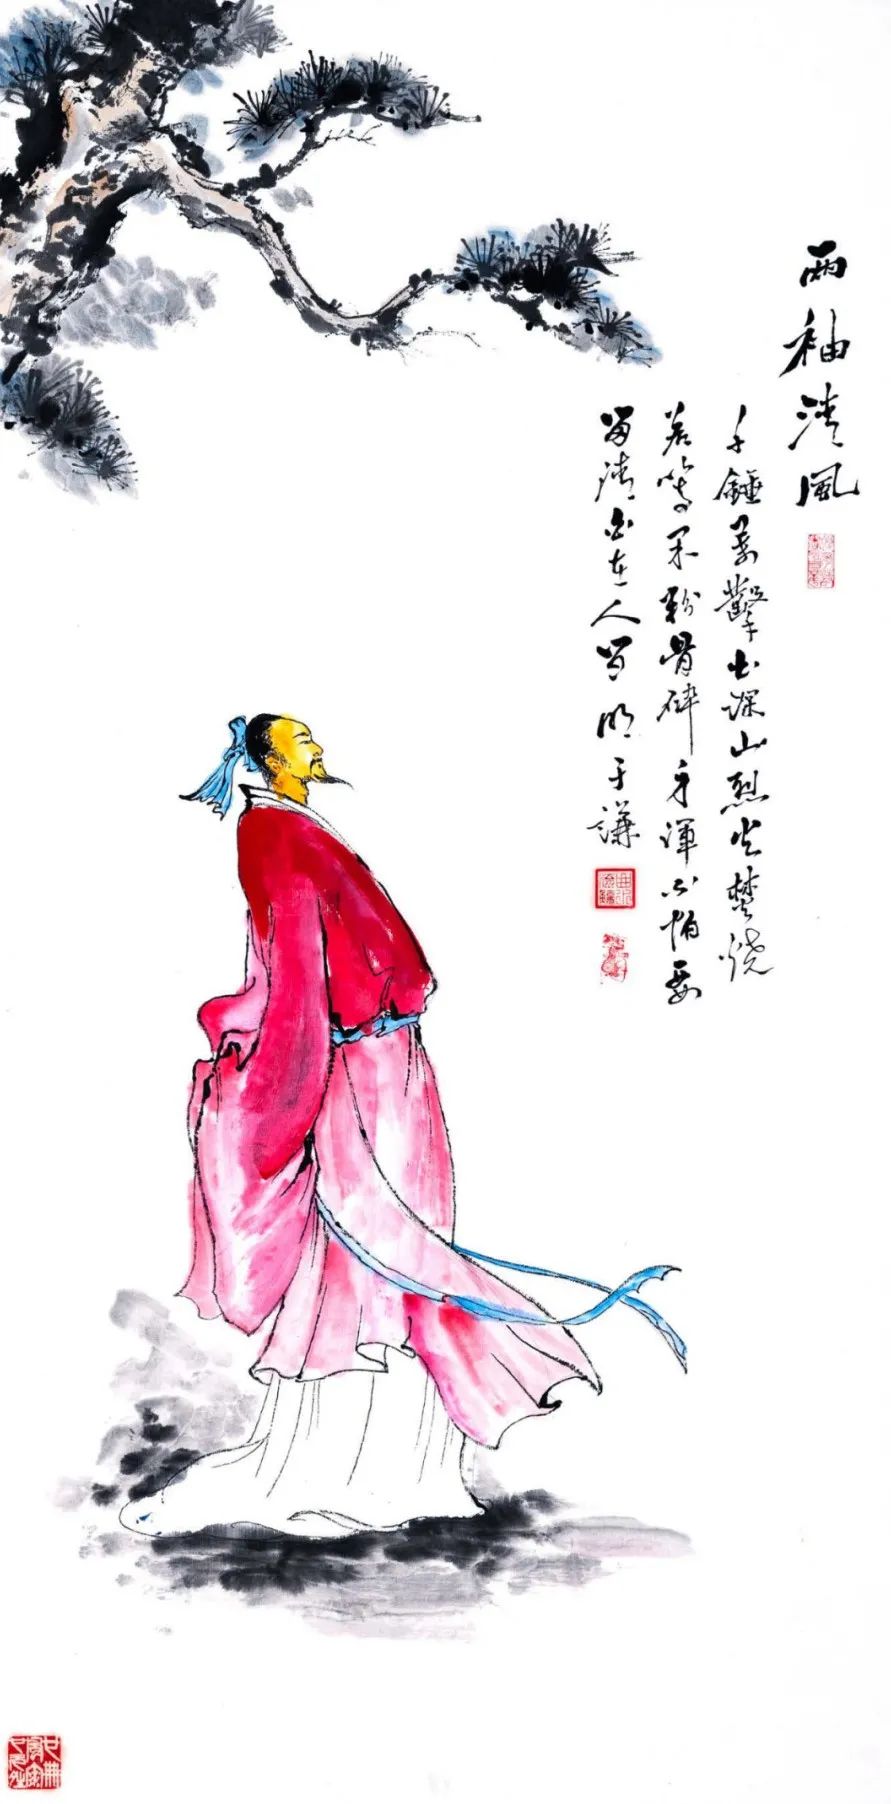 两袖清風
千錘萬鑿出深山烈火焚燒
若等閑粉骨碎身渾不怕要
留清白在人間 明 于謙